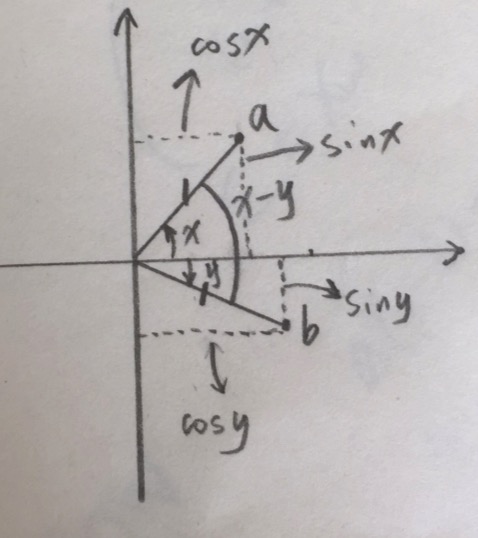 cosx
a
sinx
1
x-y
x
y
1
siny
b
cosy